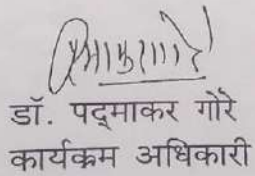 डॉ. पद्माकर गोरे
कार्यक्रम अधिकारी